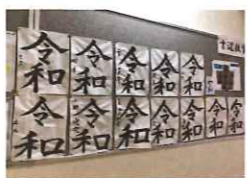 令和
令和
令和
令和
令和
令和
令和
令和
令和
令和
令和
令和
書道教